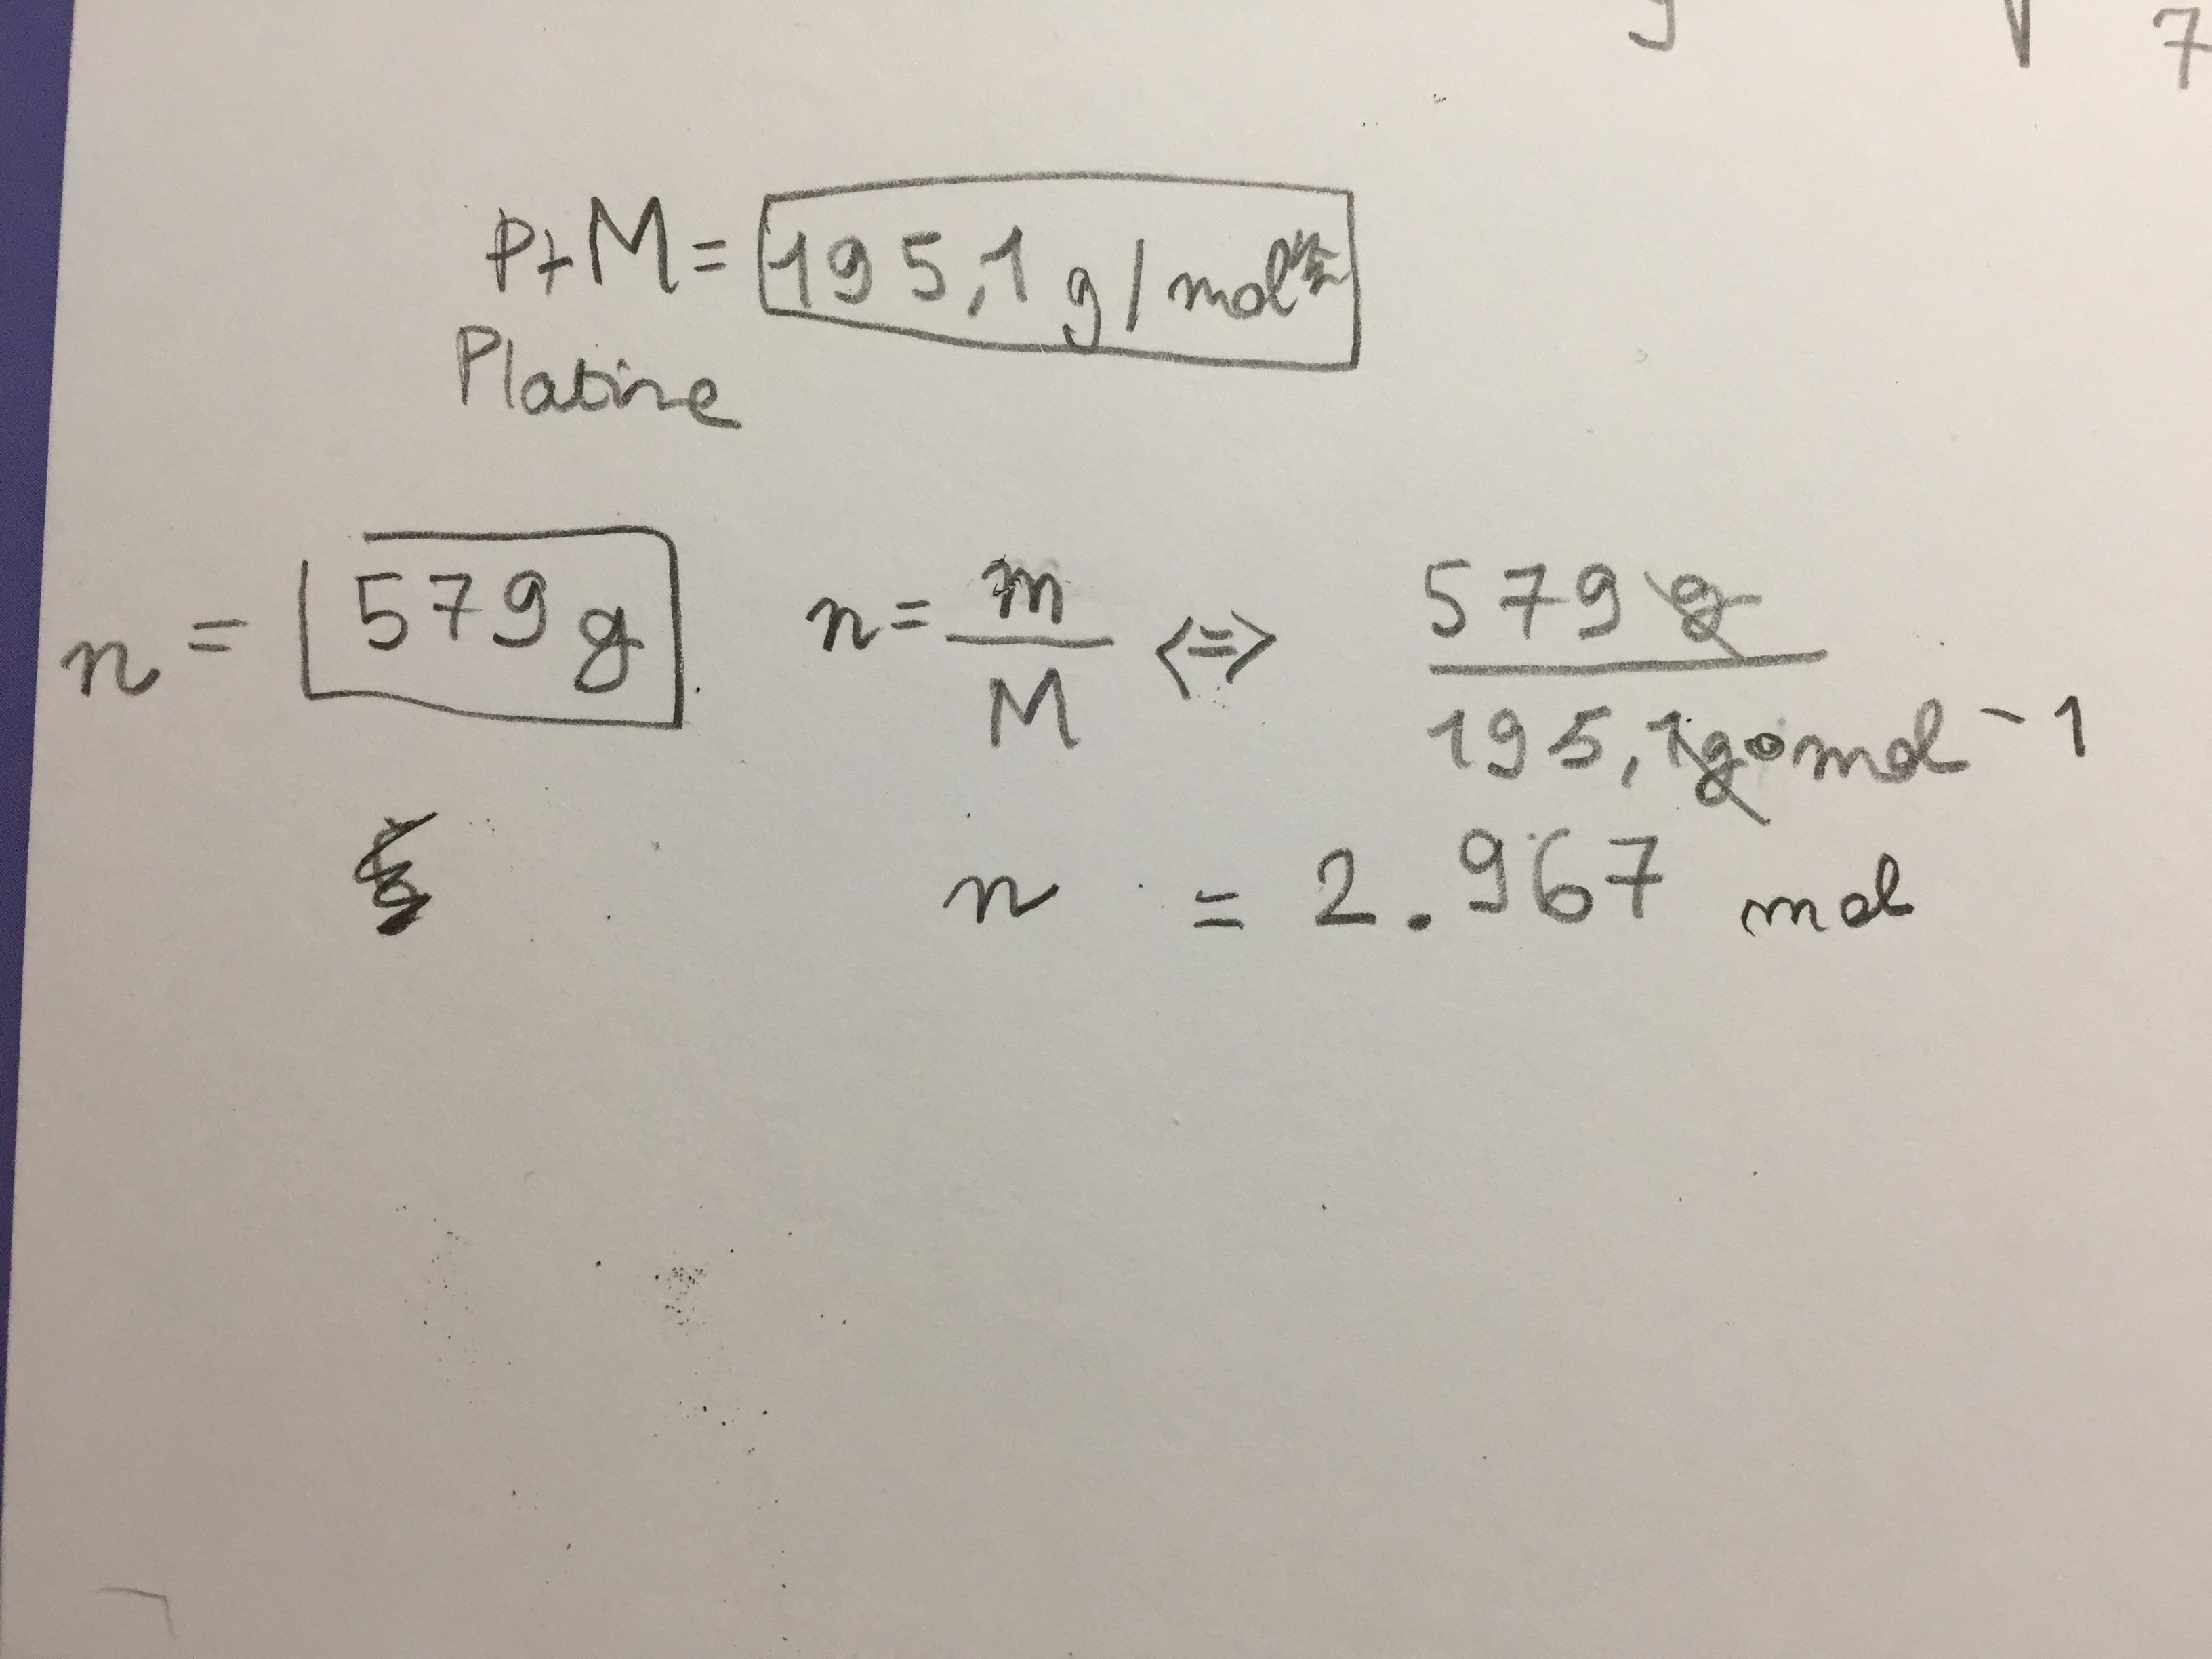 Pt M = 195,1 g/mol
Platine
n = 579 g n = m/M <=> 579 g / 195,1g•mol-1
n = 2.967 mol